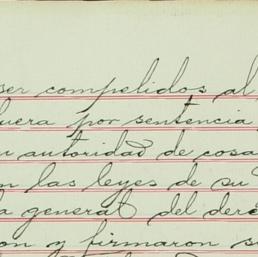 ser compelidos al
uera por sentencia
autoridad de cosa
n las leyes de su
a general del dere
on y firmaron su